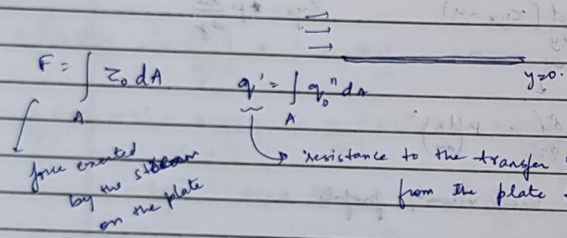 F = ∫_A τ₀ dA
q' = ∫_A q₀'' dA
y=0.
force exerted
by the stream
on the plate
resistance to the transfer
from the plate